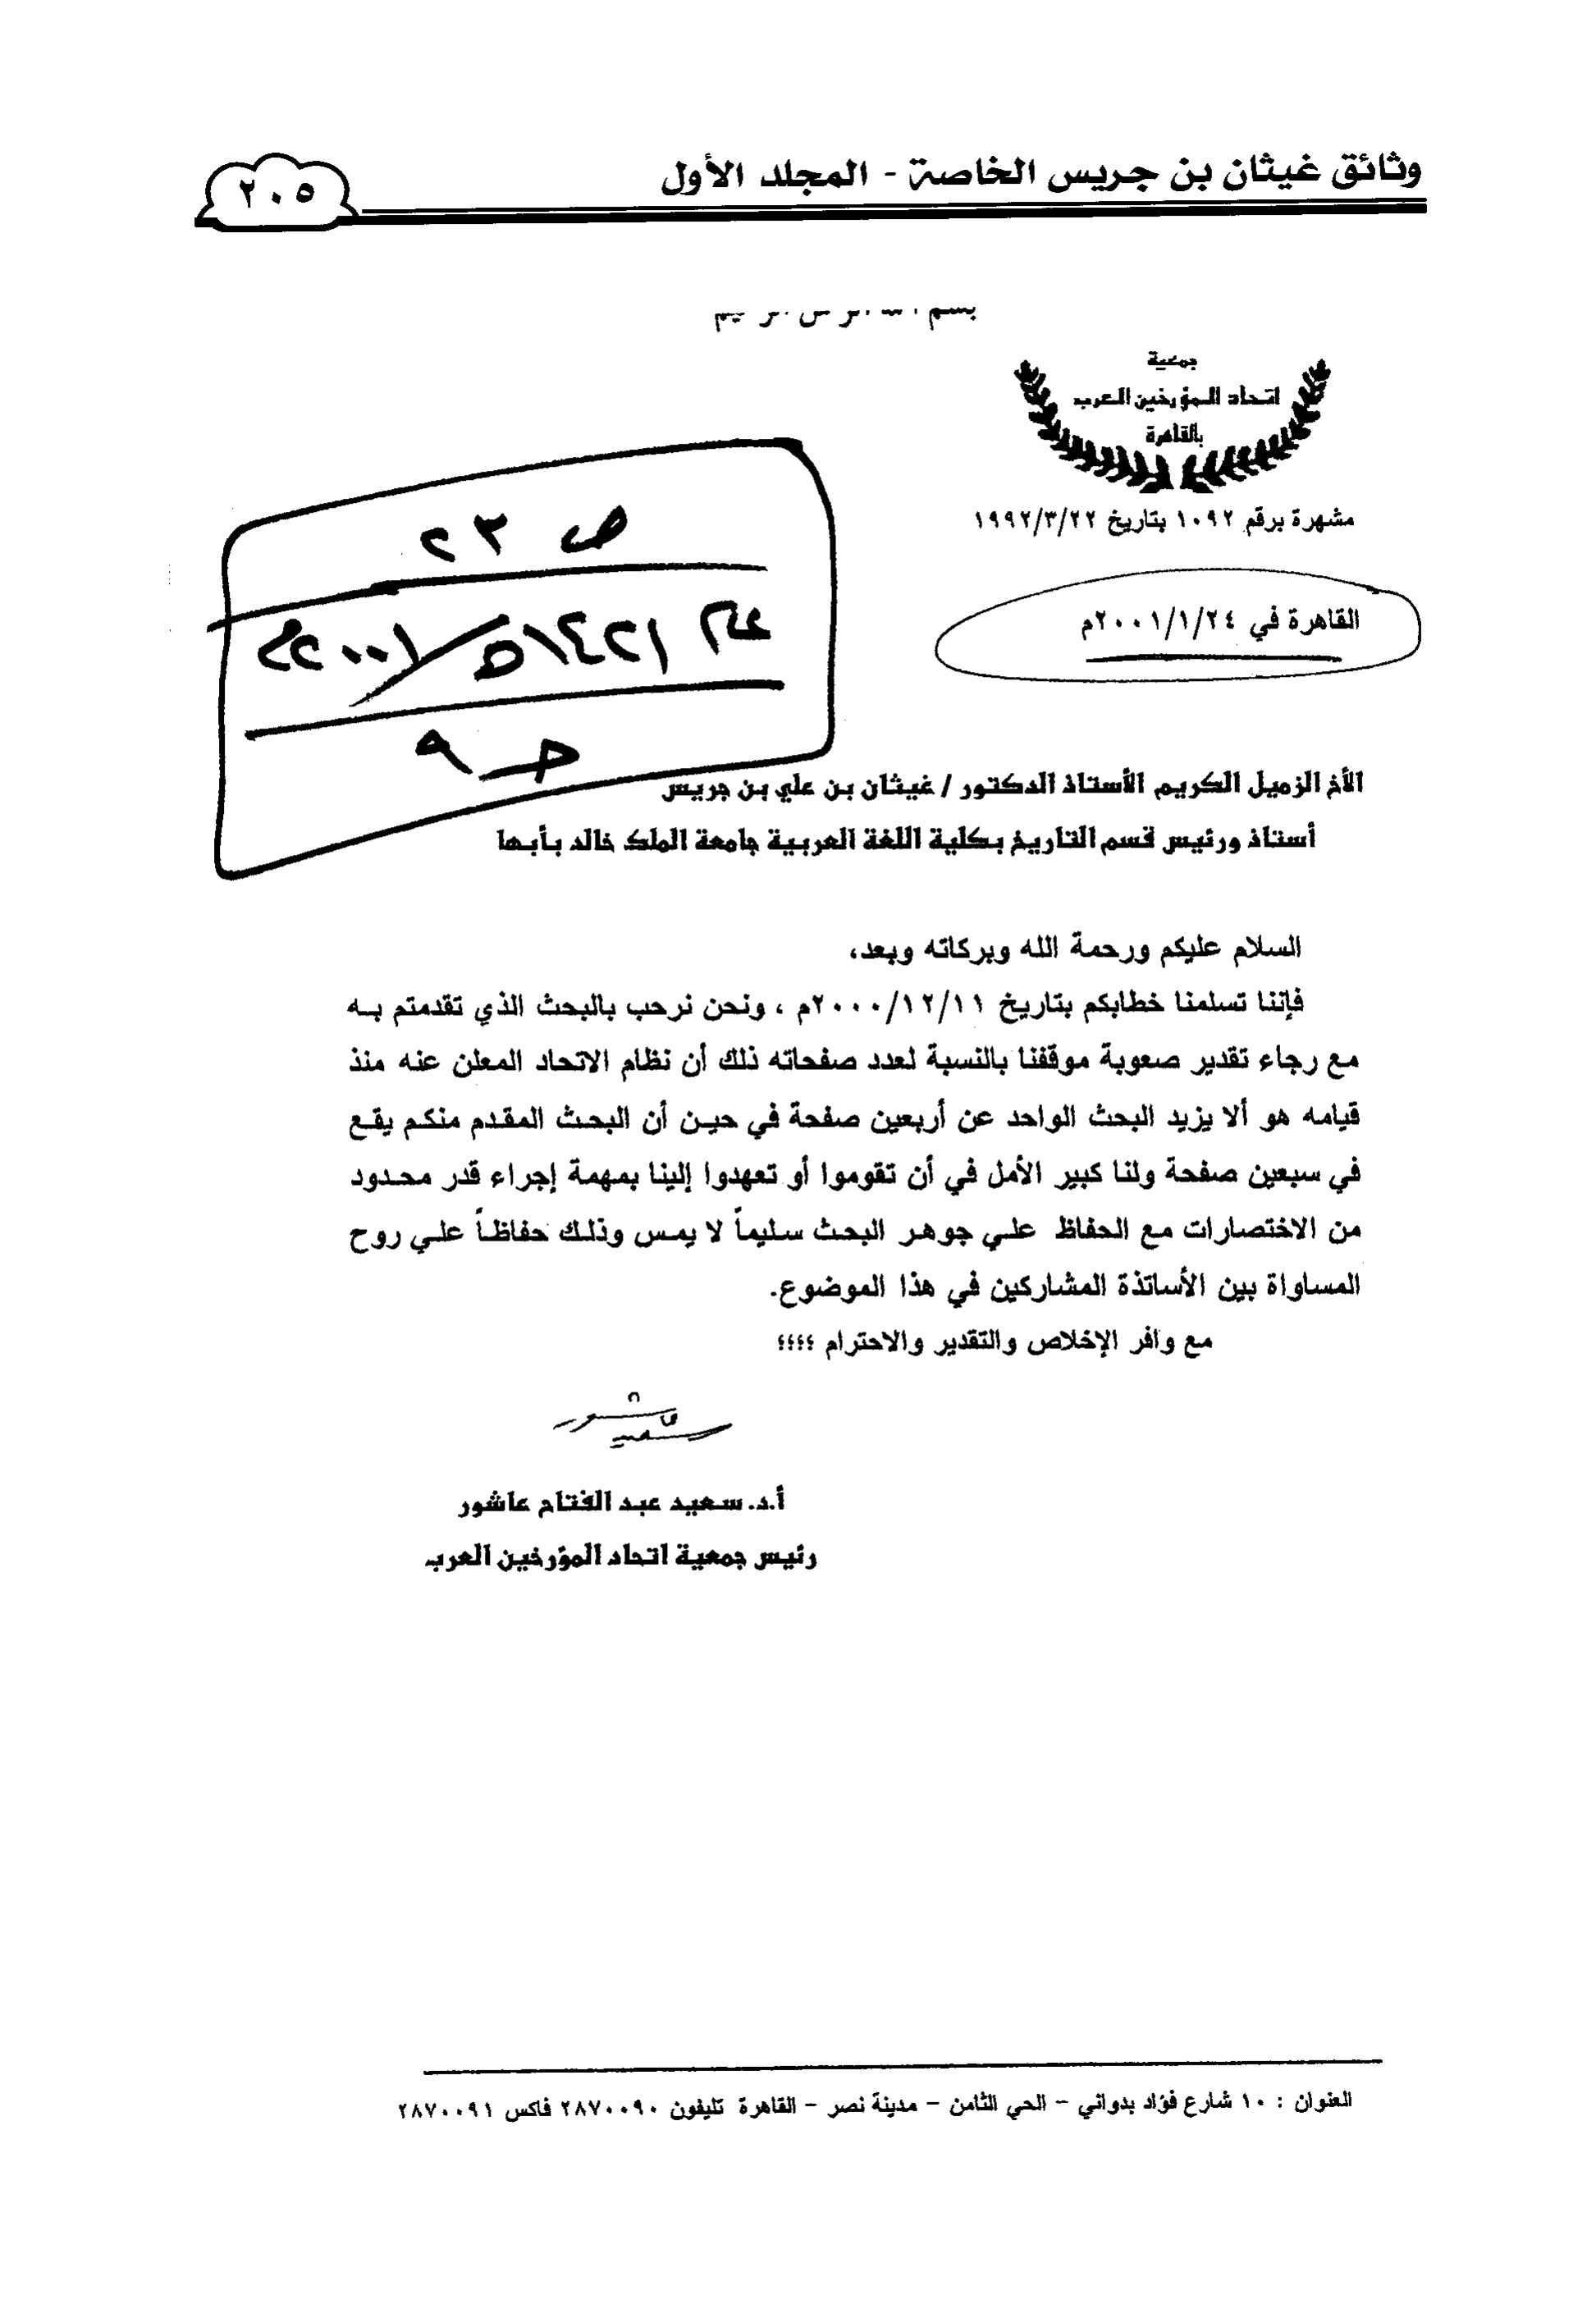 وثائق غيثان بن جريس الخاصة - المجلد الأول
٢٠٥
بسم
جمعية
اتحاد المؤرخين العرب
بالقاهرة
مشهرة برقم ١٠٩٢ بتاريخ ١٩٩٢/٣/٢٢
القاهرة في ٢٠٠١/١/٢٤م
ص ٢٣
عام ١٤٢١هـ/٢٠٠١م
حـ ٩
الأخ الزميل الكريم الأستاذ الدكتور / غيثان بن علي بن جريس
أستاذ ورئيس قسم التاريخ بكلية اللغة العربية جامعة الملك خالد بأبها
السلام عليكم ورحمة الله وبركاته وبعد،
فإننا تسلمنا خطابكم بتاريخ ٢٠٠٠/١٢/١١م ، ونحن نرحب بالبحث الذي تقدمتم به
مع رجاء تقدير صعوبة موقفنا بالنسبة لعدد صفحاته ذلك أن نظام الاتحاد المعلن عنه منذ
قيامه هو ألا يزيد البحث الواحد عن أربعين صفحة في حين أن البحث المقدم منكم يقع
في سبعين صفحة ولنا كبير الأمل في أن تقوموا أو تعهدوا إلينا بمهمة إجراء قدر محدود
من الاختصارات مع الحفاظ علي جوهر البحث سليماً لا يمس وذلك حفاظاً علي روح
المساواة بين الأساتذة المشاركين في هذا الموضوع.
مع وافر الإخلاص والتقدير والاحترام ؛؛؛؛
أ.د. سعيد عبد الفتاح عاشور
رئيس جمعية اتحاد المؤرخين العرب
العنوان : ١٠ شارع فؤاد بدواني - الحي الثامن - مدينة نصر - القاهرة تليفون ٢٨٧٠٠٩٠ فاكس ٢٨٧٠٠٩١